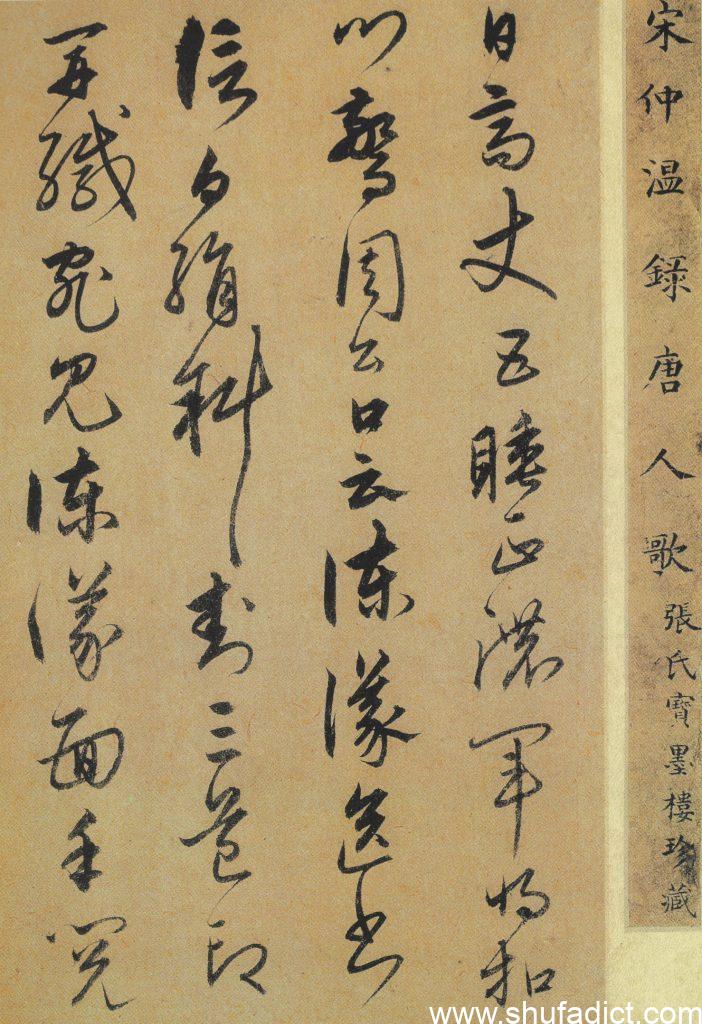 宋仲温録唐人歌 張氏寶墨樓珍藏
日高丈五睡正濃軍將扣
門驚周公口云諫議送書
信白絹斜封三道印
開緘宛見諫議面手閱
www.shufadict.com